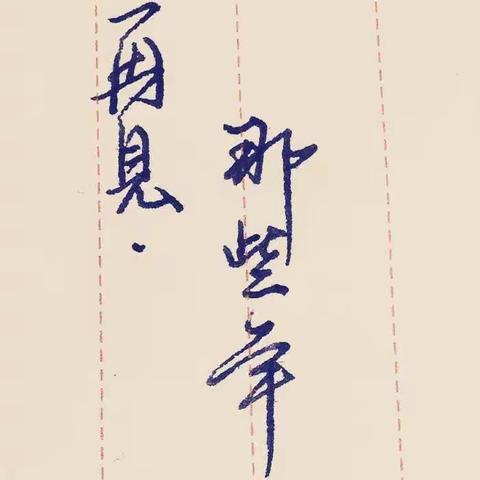 再見·
那些年